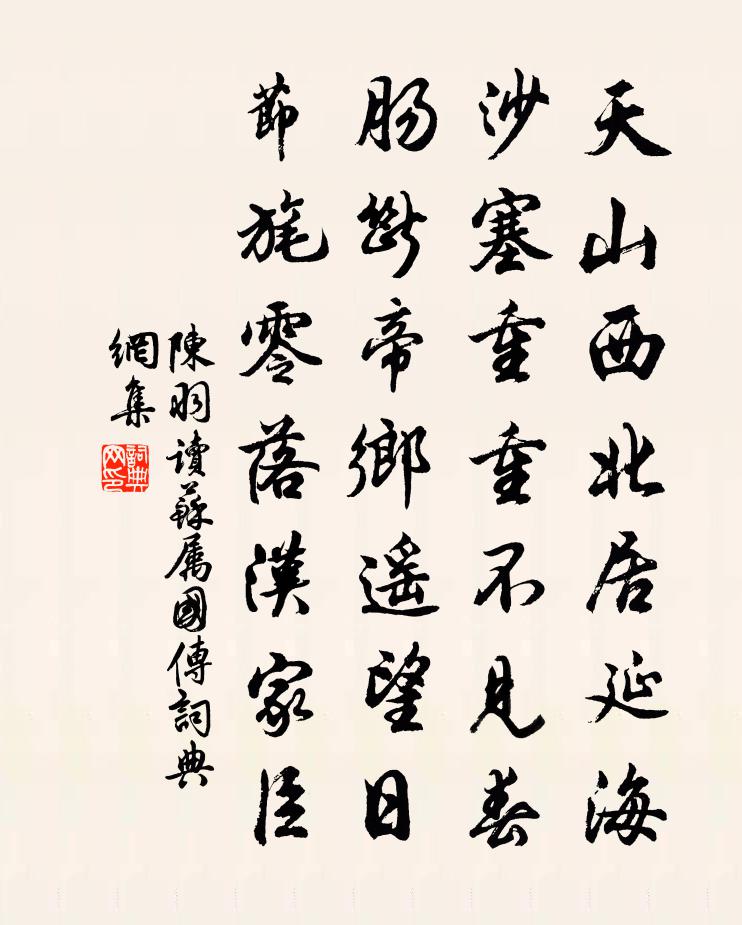 天山西北居延海
沙塞重重不見春
腸斷帝鄉遥望日
節旄零落漢家臣
陳羽讀蘇属國傳詞典
網集
詞典
网印